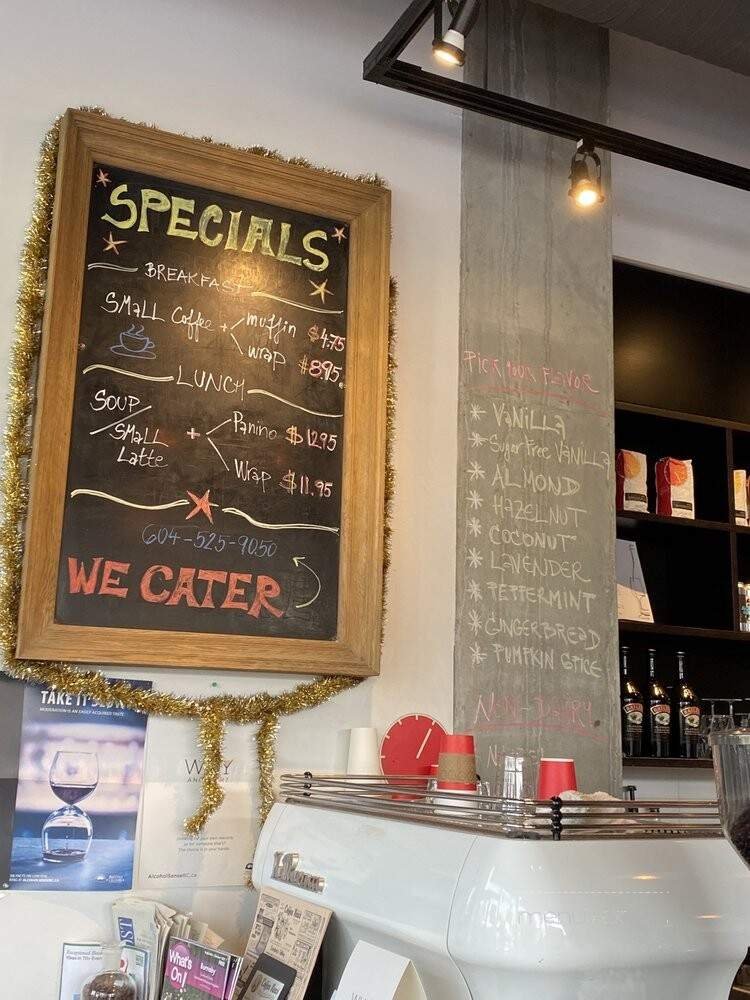 SPECIALS
BREAKFAST
SMALL Coffee + muffin $4.75
wrap $8.95
LUNCH
SOUP/
SMALL Latte + Panino $12.95
Wrap $11.95
604-525-9050
WE CATER
PICK YOUR FLAVOR
* VANILLA
* Sugar Free VANILLA
* ALMOND
* HAZELNUT
* COCONUT
* LAVENDER
* PEPPERMINT
* GINGERBREAD
* PUMPKIN SPICE
NON-DAIRY
TAKE IT SLOW
MODERATION IS AN EASILY ACQUIRED TASTE.
WHY
AlcoholSenseBC.ca
What's On!
Burnaby
menulix